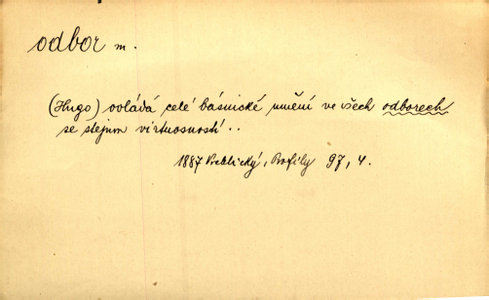 odbor m.
(Hugo) ovládá celé básnické umění ve všech odborech
se stejnou virtuosností ..
1887 Vrchlický, Profily 97, 4.